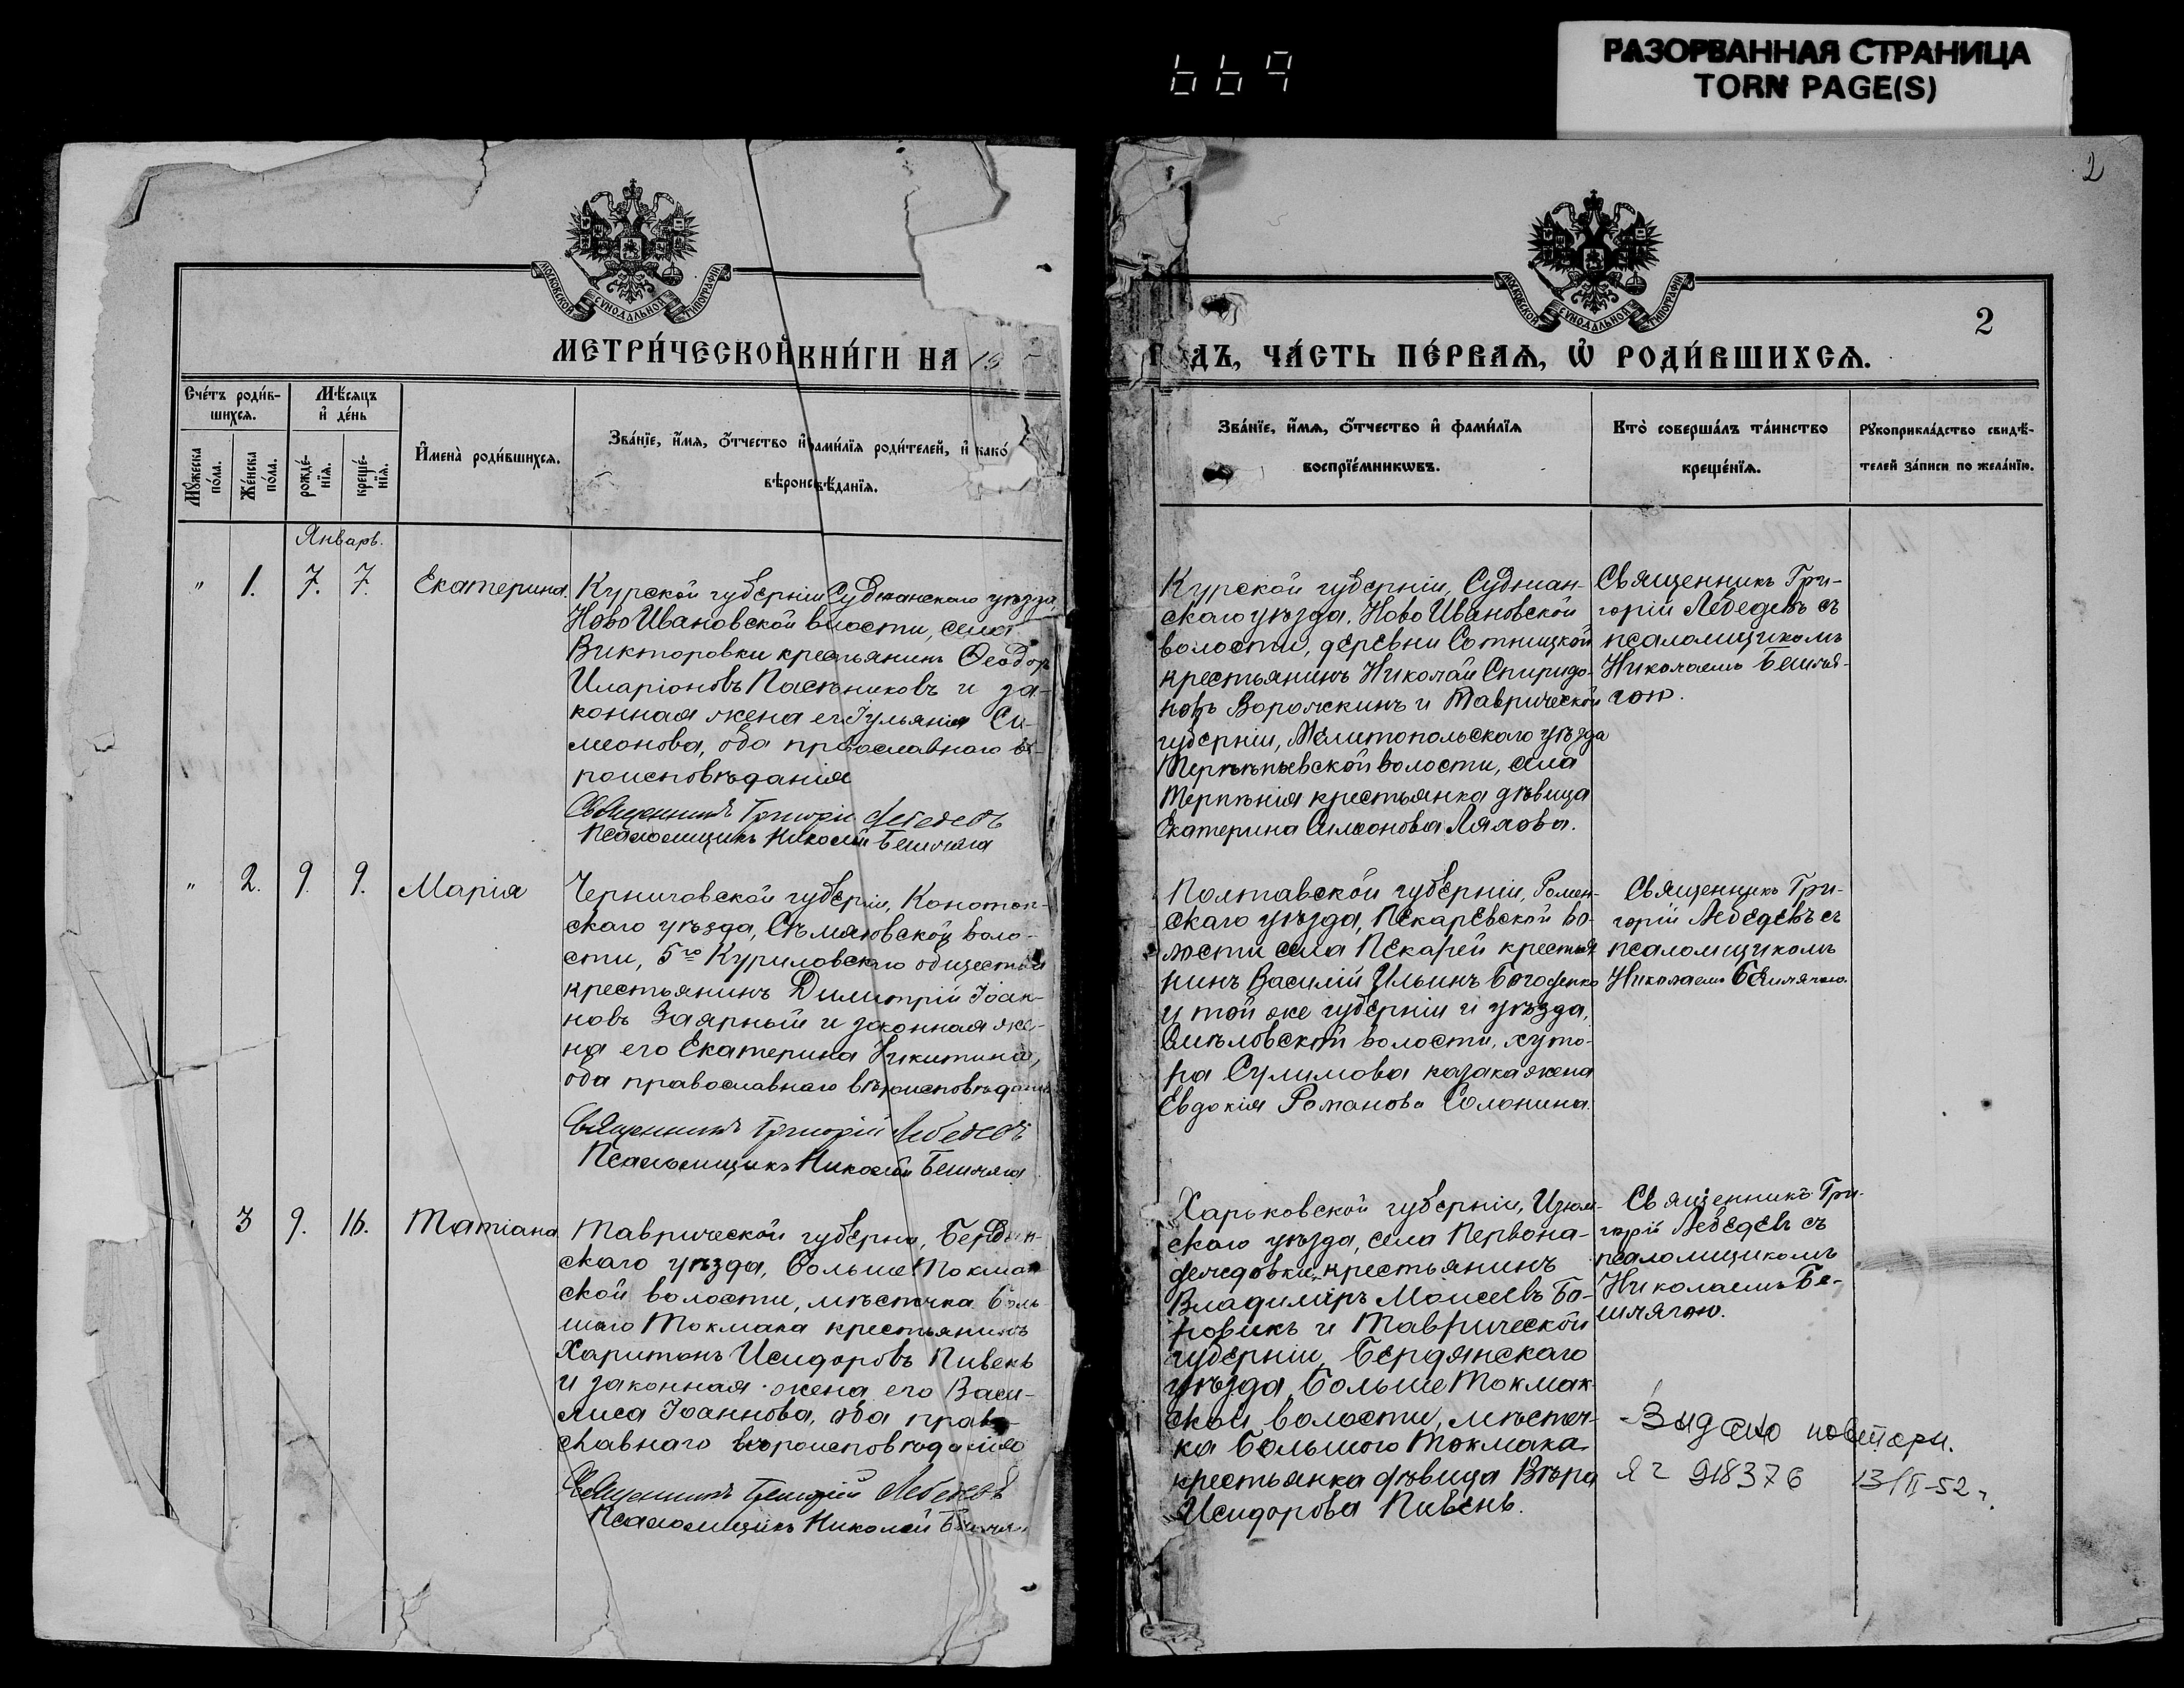 669
РАЗОРВАННАЯ СТРАНИЦА
TORN PAGE(S)
2
МОСКОВСКОЙ СѴНОДАЛЬНОЙ ТИПОГРАФІИ
МОСКОВСКОЙ СѴНОДАЛЬНОЙ ТИПОГРАФІИ
2
МЕТРИ́ЧЕСКОЙ КНИ́ГИ НА 19
ДЪ, ЧА́СТЬ ПЕ́РВАѦ, Ѽ РОДИ́ВШИХСѦ.
Сче́тъ роди́в-
шихсѧ.
Мѣ́сѧцъ
и҆ де́нь
Мꙋ́жеска
по́ла.
Же́нска
по́ла.
рожде́-
нїѧ.
креще́-
нїѧ.
И҆мена̀ роди́вшихсѧ.
Зва́нїе, и҆́мѧ, ѻ҆́тчество и҆ фами́лїѧ роди́телей, и҆ како́
вѣроисповѣ́данїѧ.
Зва́нїе, и҆́мѧ, ѻ҆́тчество и҆ фами́лїѧ
воспрїе́мникѡвъ.
Кто̀ соверша́лъ та́инство
креще́нїѧ.
Рꙋкоприкла́дство свидѣ́-
телей за́писи по жела́нїю.
Январь.
" 1. 7. 7. Екатерина.
Курской губерніи Суджанскаго уѣзда,
Ново Ивановской волости, села
Викторовки крестьянинъ Ѳеодоръ
Иларіоновъ Пасѣниковъ и за-
конная жена его Іульянія Си-
меонова, оба православнаго вѣ-
роисповѣданія
Священникъ Григорій Лебедевъ
Псаломщикъ Николай Бешляга
Курской губерніи, Суджан-
скаго уѣзда, Ново Ивановской
волости, деревни Сотницкой
крестьянинъ Николай Спиридо-
новъ Ворожкинъ и Таврической
губерніи, Мелитопольскаго уѣзда
Терпѣньевской волости, села
Терпѣнія крестьянка дѣвица
Екатерина Симеонова Ляхова.
Священникъ Гри-
горій Лебедевъ съ
псаломщикомъ
Николаемъ Бешля-
гою.
" 2. 9. 9. Марія
Черниговской губерніи, Конотоп-
скаго уѣзда, Съмяновской воло-
сти, 5го Куриловскаго общества
крестьянинъ Димитрій Іоан-
новъ Заярный и законная же-
на его Екатерина Никитина,
оба православнаго вѣроисповѣданія
Священникъ Григорій Лебедевъ
Псаломщикъ Николай Бешляга
Полтавской губерніи, Ромен-
скаго уѣзда, Пекаревской во-
лости села Пекарей крестья
нинъ Василій Ильинъ
и той же губерніи и уѣзда,
Смѣловской волости, хуто-
ра Сулимова казака жена
Евдокія Романова Солонина.
Священникъ Гри-
горій Лебедевъ съ
псаломщикомъ
Николаемъ Бешлягою.
3 9. 16. Татіана
Таврической губерніи, Бердян-
скаго уѣзда, Больше Токмак
ской волости, мѣстечка Боль
шаго Токмака крестьянинъ
Харитонъ Исидоровъ Пивень
и законная жена его Васи-
лиса Іоаннова, оба право-
славнаго вѣроисповѣданія
Священникъ Григорій Лебедевъ
Псаломщикъ Николай Бешляга
Харьковской губерніи, Изюм-
скаго уѣзда, села Первона-
крестьянинъ
Владиміръ Моисеевъ Бо-
ровикъ и Таврической
губерніи, Бердянскаго
уѣзда, Больше Токмак-
ской волости, мѣстеч-
ка Большого Токмака
крестьянка дѣвица Вѣра
Исидорова Пивень.
Священникъ Гри-
горій Лебедевъ съ
псаломщикомъ
Николаемъ Бе-
шлягою.
Выдано повторн.
ЯГ 918376 13/II-52 г.